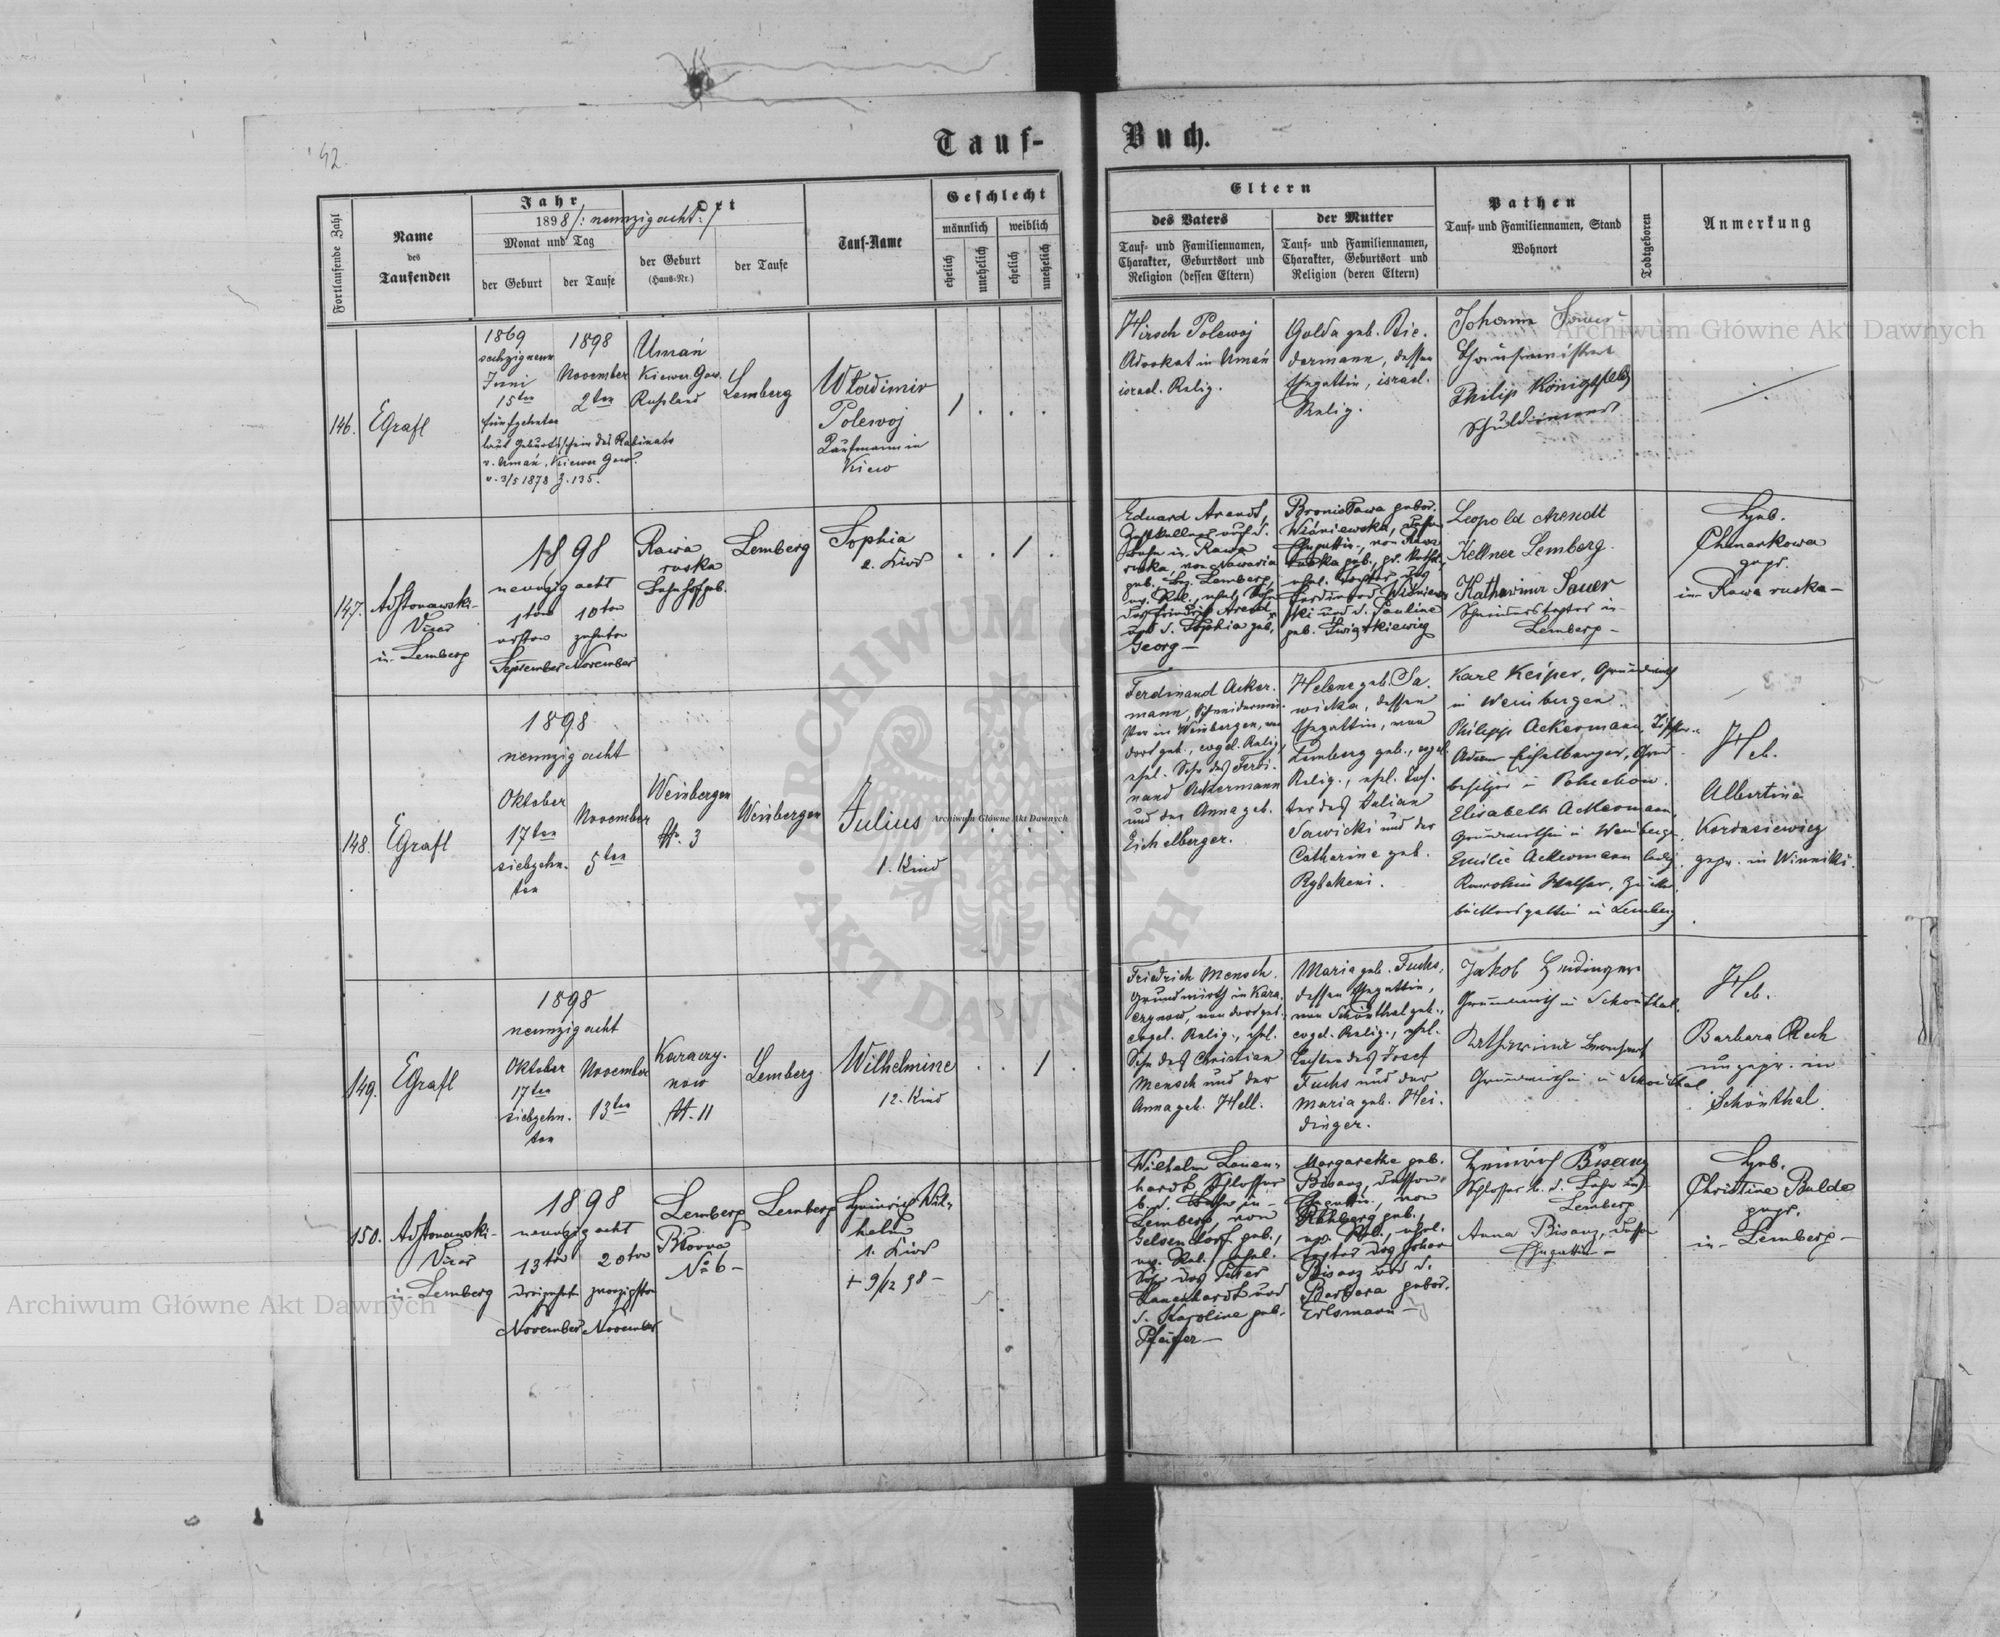 42.
Tauf-
Buch.
Fortlaufende Zahl
Name
des
Taufenden
Jahr
1898 /: neunzig acht :/
Monat und Tag
der Geburt
der Taufe
Ort
der Geburt
(Haus-Nr.)
der Taufe
Tauf-Name
Geschlecht
männlich
weiblich
ehelich
unehelich
ehelich
unehelich
Eltern
des Vaters
Tauf- und Familiennamen,
Charakter, Geburtsort und
Religion (dessen Eltern)
der Mutter
Tauf- und Familiennamen,
Charakter, Geburtsort und
Religion (deren Eltern)
Pathen
Tauf- und Familiennamen, Stand
Wohnort
Todtgeboren
Anmerkung
146.
EGrafl
1869
sechzig neun
Juni
15ten
fünfzehnten
laut Geburtsschein des Rabinats
v. Umań, Kiewer Gouv.
v. 3/5 1878 Z. 135.
1898
November
2ten
Umań
Kiewer Gouv.
Russland
Lemberg
Wladimir
Polewoj
Kaufmann in
Kiew
1 . . .
Hirsch Polewoj
Advokat in Umań
israel. Relig.
Golda geb. Bie-
dermann, dessen
Ehegattin, israel.
Relig.
Johann
Philip Königsfeld
147.
Vicar
in Lemberg
1898
neunzig acht
1ten
ersten
September
10ten
zehnten
November
Rawa
ruska
Bahnhofgeb.
Lemberg
Sophia
2. Kind
. . 1 .
Eduard Arendt,
Bahn in Rawa
ruska, von Nawaria
geb. Bez. Lemberg,
ev. Rel., ehel. Sohn
des Friedrich Arendt
und d. Sophia geb.
Georg —
Bronisława gebor.
Wiśniewska, dessen
Ehegattin, von Rawa
ruska geb.,
ehel. Tochter des
Ferdinand Wiśniew-
ski und d. Pauline
geb.
Leopold Arendt
Kellner Lemberg.
Katharina Sauer
Schneiderstochter in
Lemberg —
Heb.
Chmarkowa
gepr.
in Rawa ruska —
148.
EGrafl
1898
neunzig acht
Oktober
17ten
siebzehn-
ten
November
5ten
Weinbergen
№ 3
Weinbergen
Julius
1. Kind
1 . . .
Ferdinand Acker-
mann, Schneidermei-
ster in Weinbergen, von
dort geb., evgel. Relig.,
ehel. Sohn des Ferdi-
nand Ackermann
und der Anna geb.
Eichelberger.
Helene geb. Sa-
wicka, dessen
Ehegattin, von
Lemberg geb., evgel.
Relig., ehel. Toch-
ter des Julian
Sawicki und der
Catharine geb.
Karl Keiper, Grundwirth
in Weinbergen.
Philipp Ackermann,
Adam Eichelberger,
besitzer in
Elisabeth Ackermann,
Grundwirthin in Weinbergen
Emilie Ackermann ledig
bäckersgattin in Lemberg
Heb.
Albertine
Kordasiewicz
gepr. in Winniki.
149.
EGrafl
1898
neunzig acht
Oktober
17ten
siebzehn-
ten
November
13ten
Karaczy-
now
№. 11
Lemberg
Wilhelmine
12. Kind
. . 1 .
Friedrich Mensch.
Grundwirth in Kara-
czynow, von dort geb.
evgel. Relig., ehel.
Sohn des Christian
Mensch und der
Anna geb. Hell.
Maria geb. Fuchs,
dessen Ehegattin,
von Schönthal geb.,
evgel. Relig., ehel.
Tochter des Josef
Fuchs und der
Maria geb. Hei-
dinger.
Jakob Heidinger
Grundwirth in Schönthal.
Katharina
Grundwirthin in Schönthal
Heb.
Barbara Rech
ungepr. in
Schönthal.
150.
Vicar
in Lemberg
1898
neunzig acht
13ten
dreizehnt
November
20ten
zwanzigsten
November
Lemberg
№ 6 —
Lemberg
Heinrich Wil-
helm
1. Kind
+ 9/12 98 —
Wilhelm Lauen-
hardt, Schlosser
b. d. Bahn in
Lemberg, von
Gelsendorf geb.,
ev. Rel., ehel.
Sohn des Peter
Lauenhardt und
d. Karoline geb.
Pfeifer —
Margarethe geb.
Bisanz, dessen
Ehegattin, von
Rehberg geb.,
ev. Rel., ehel.
Tochter des Johann
Bisanz und d.
Barbara gebor.
Erlsmann —
Heinrich Bisanz
Schlosser b. d. Bahn in
Lemberg
Anna Bisanz, dessen
Ehegattin —
Heb.
Christine Bulde
gepr.
in Lemberg —
Archiwum Główne Akt Dawnych
Archiwum Główne Akt Dawnych
Archiwum Główne Akt Dawnych
ARCHIWUM
AKT DAWNYCH